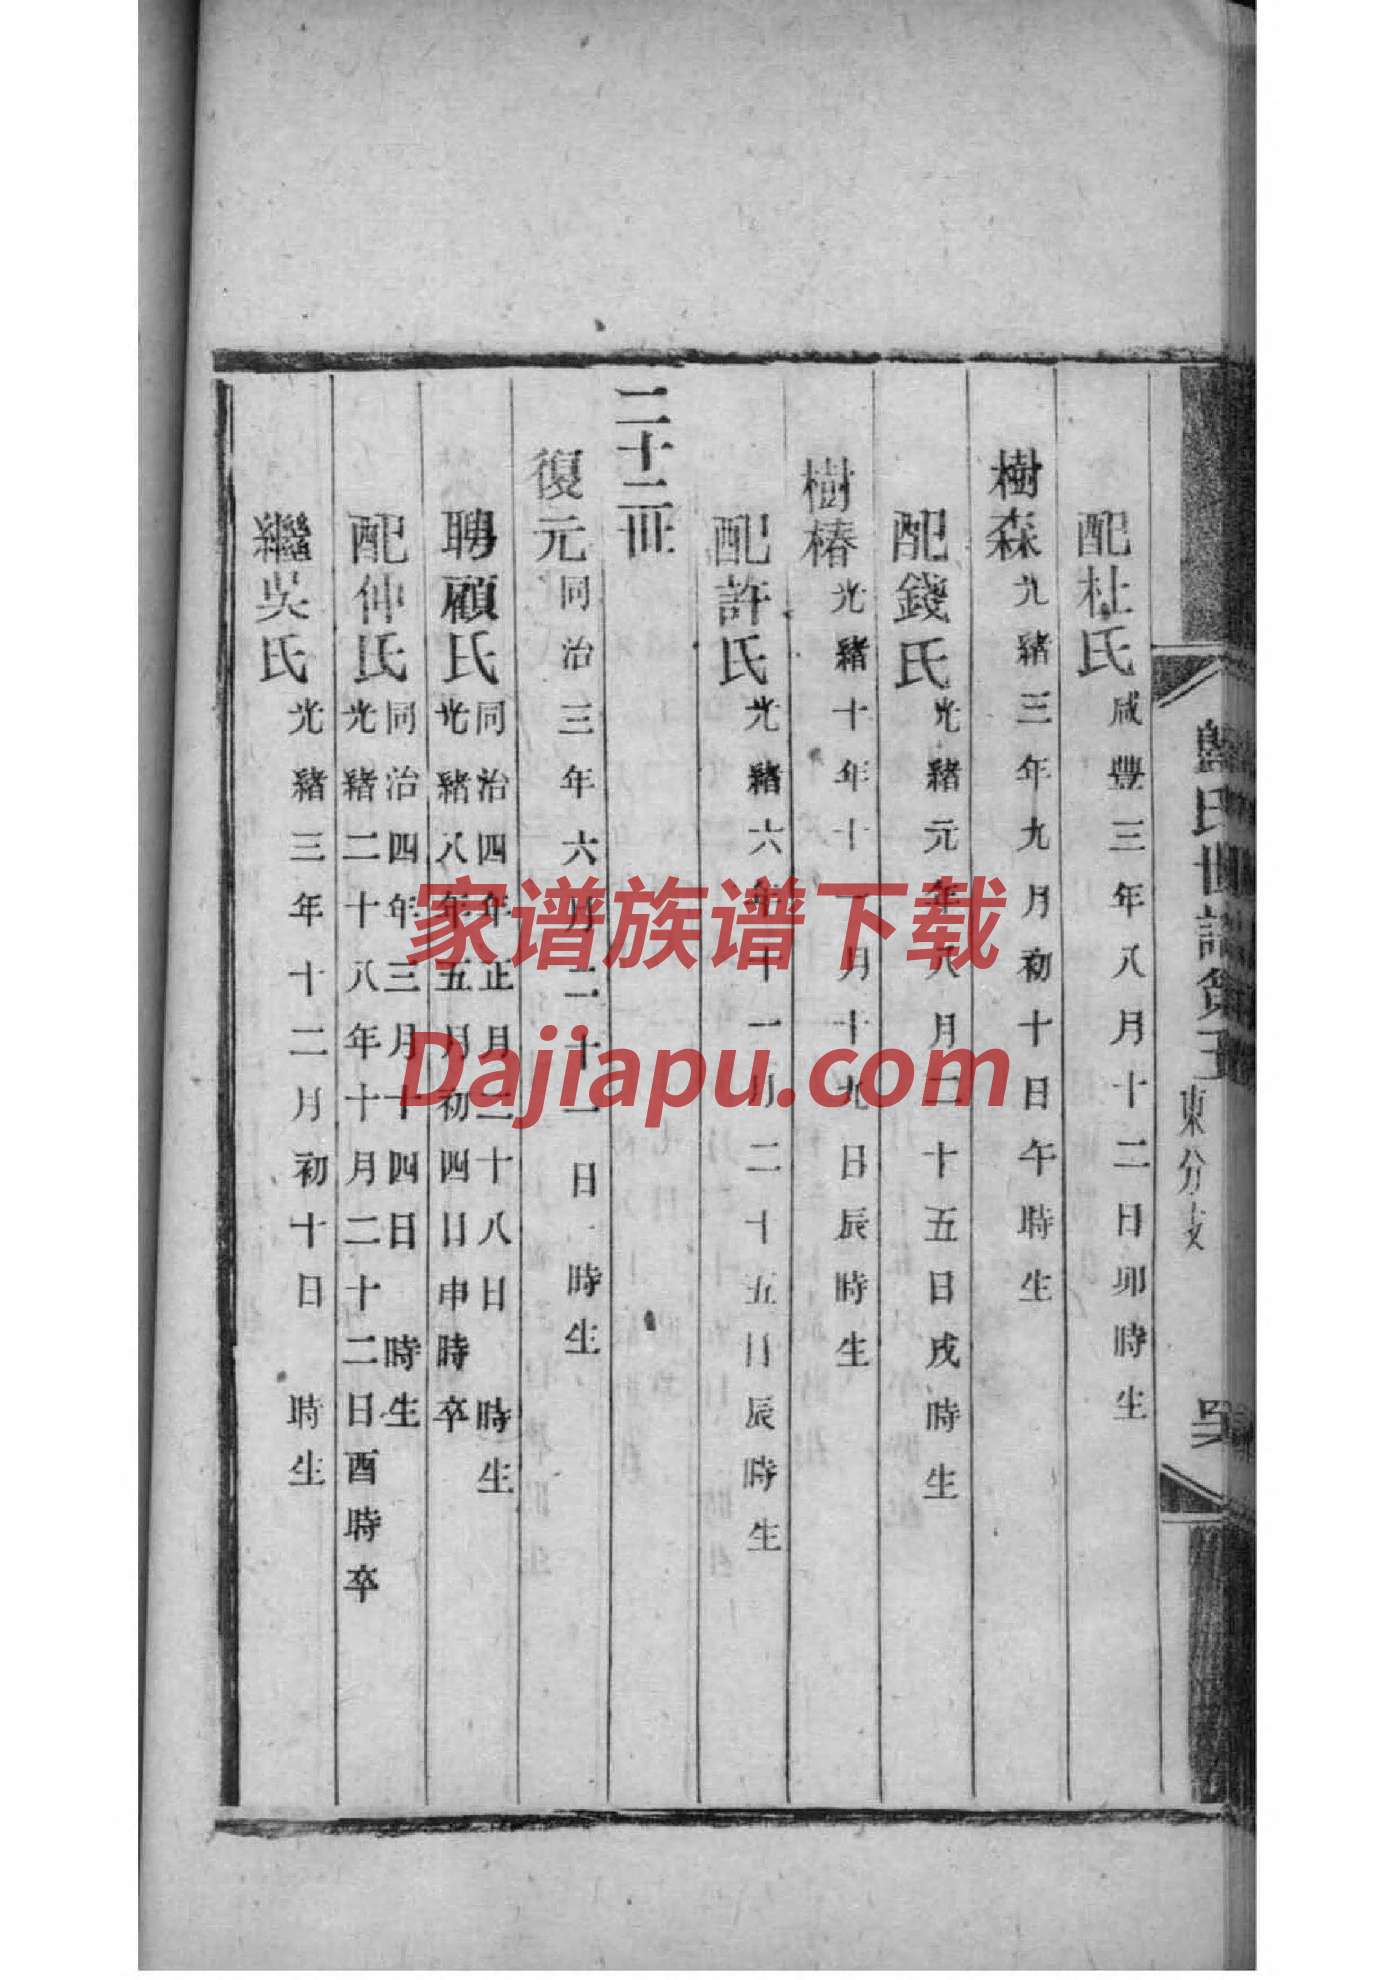 配杜氏咸豐三年八月十二日卯時生
樹森光緒三年九月初十日午時生
配錢氏光緒元年八月二十五日戌時生
樹椿光緒十年十一月十九日辰時生
配許氏光緒六年十一月二十五日辰時生
二十二世
復元同治三年六月二十一日 時生
聘顧氏同治四年正月二十八日 時生
光緒八年五月初四日申時卒
配仲氏同治四年三月十四日 時生
光緒二十八年十月二十二日酉時卒
繼吳氏光緒三年十二月初十日 時生
氏世譜第五 東分支
家谱族谱下载
Dajiapu.com